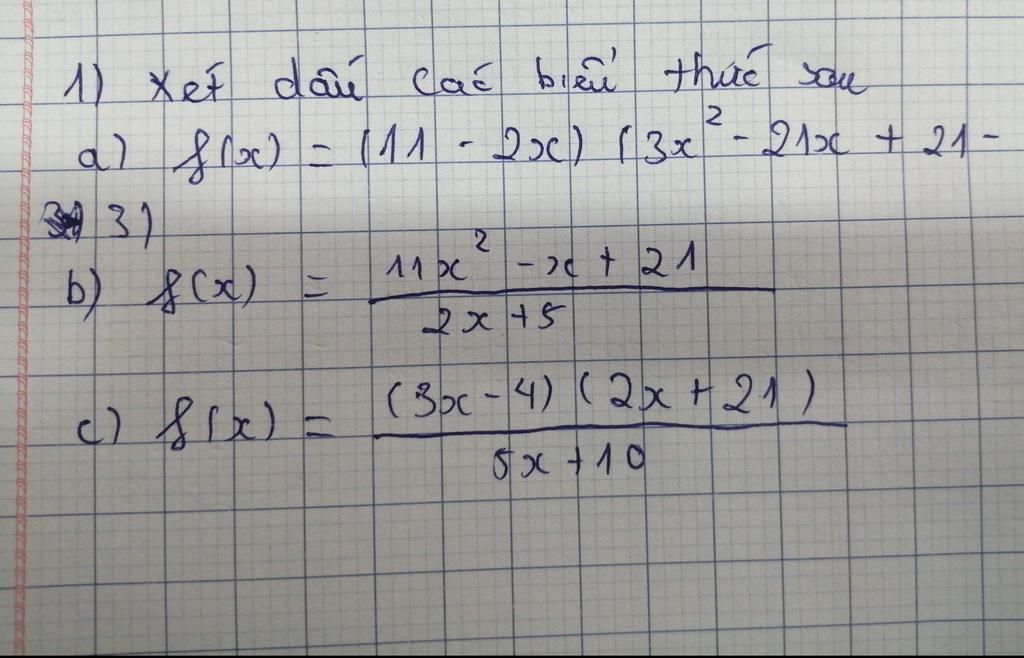 1) Xét dấu các biểu thức sau
a) f(x) = (11 - 2x) (3x² - 21x + 21 -
3)
b) f(x) = \frac{11x² - x + 21}{2x + 5}
c) f(x) = \frac{(3x - 4) (2x + 21)}{5x + 10}